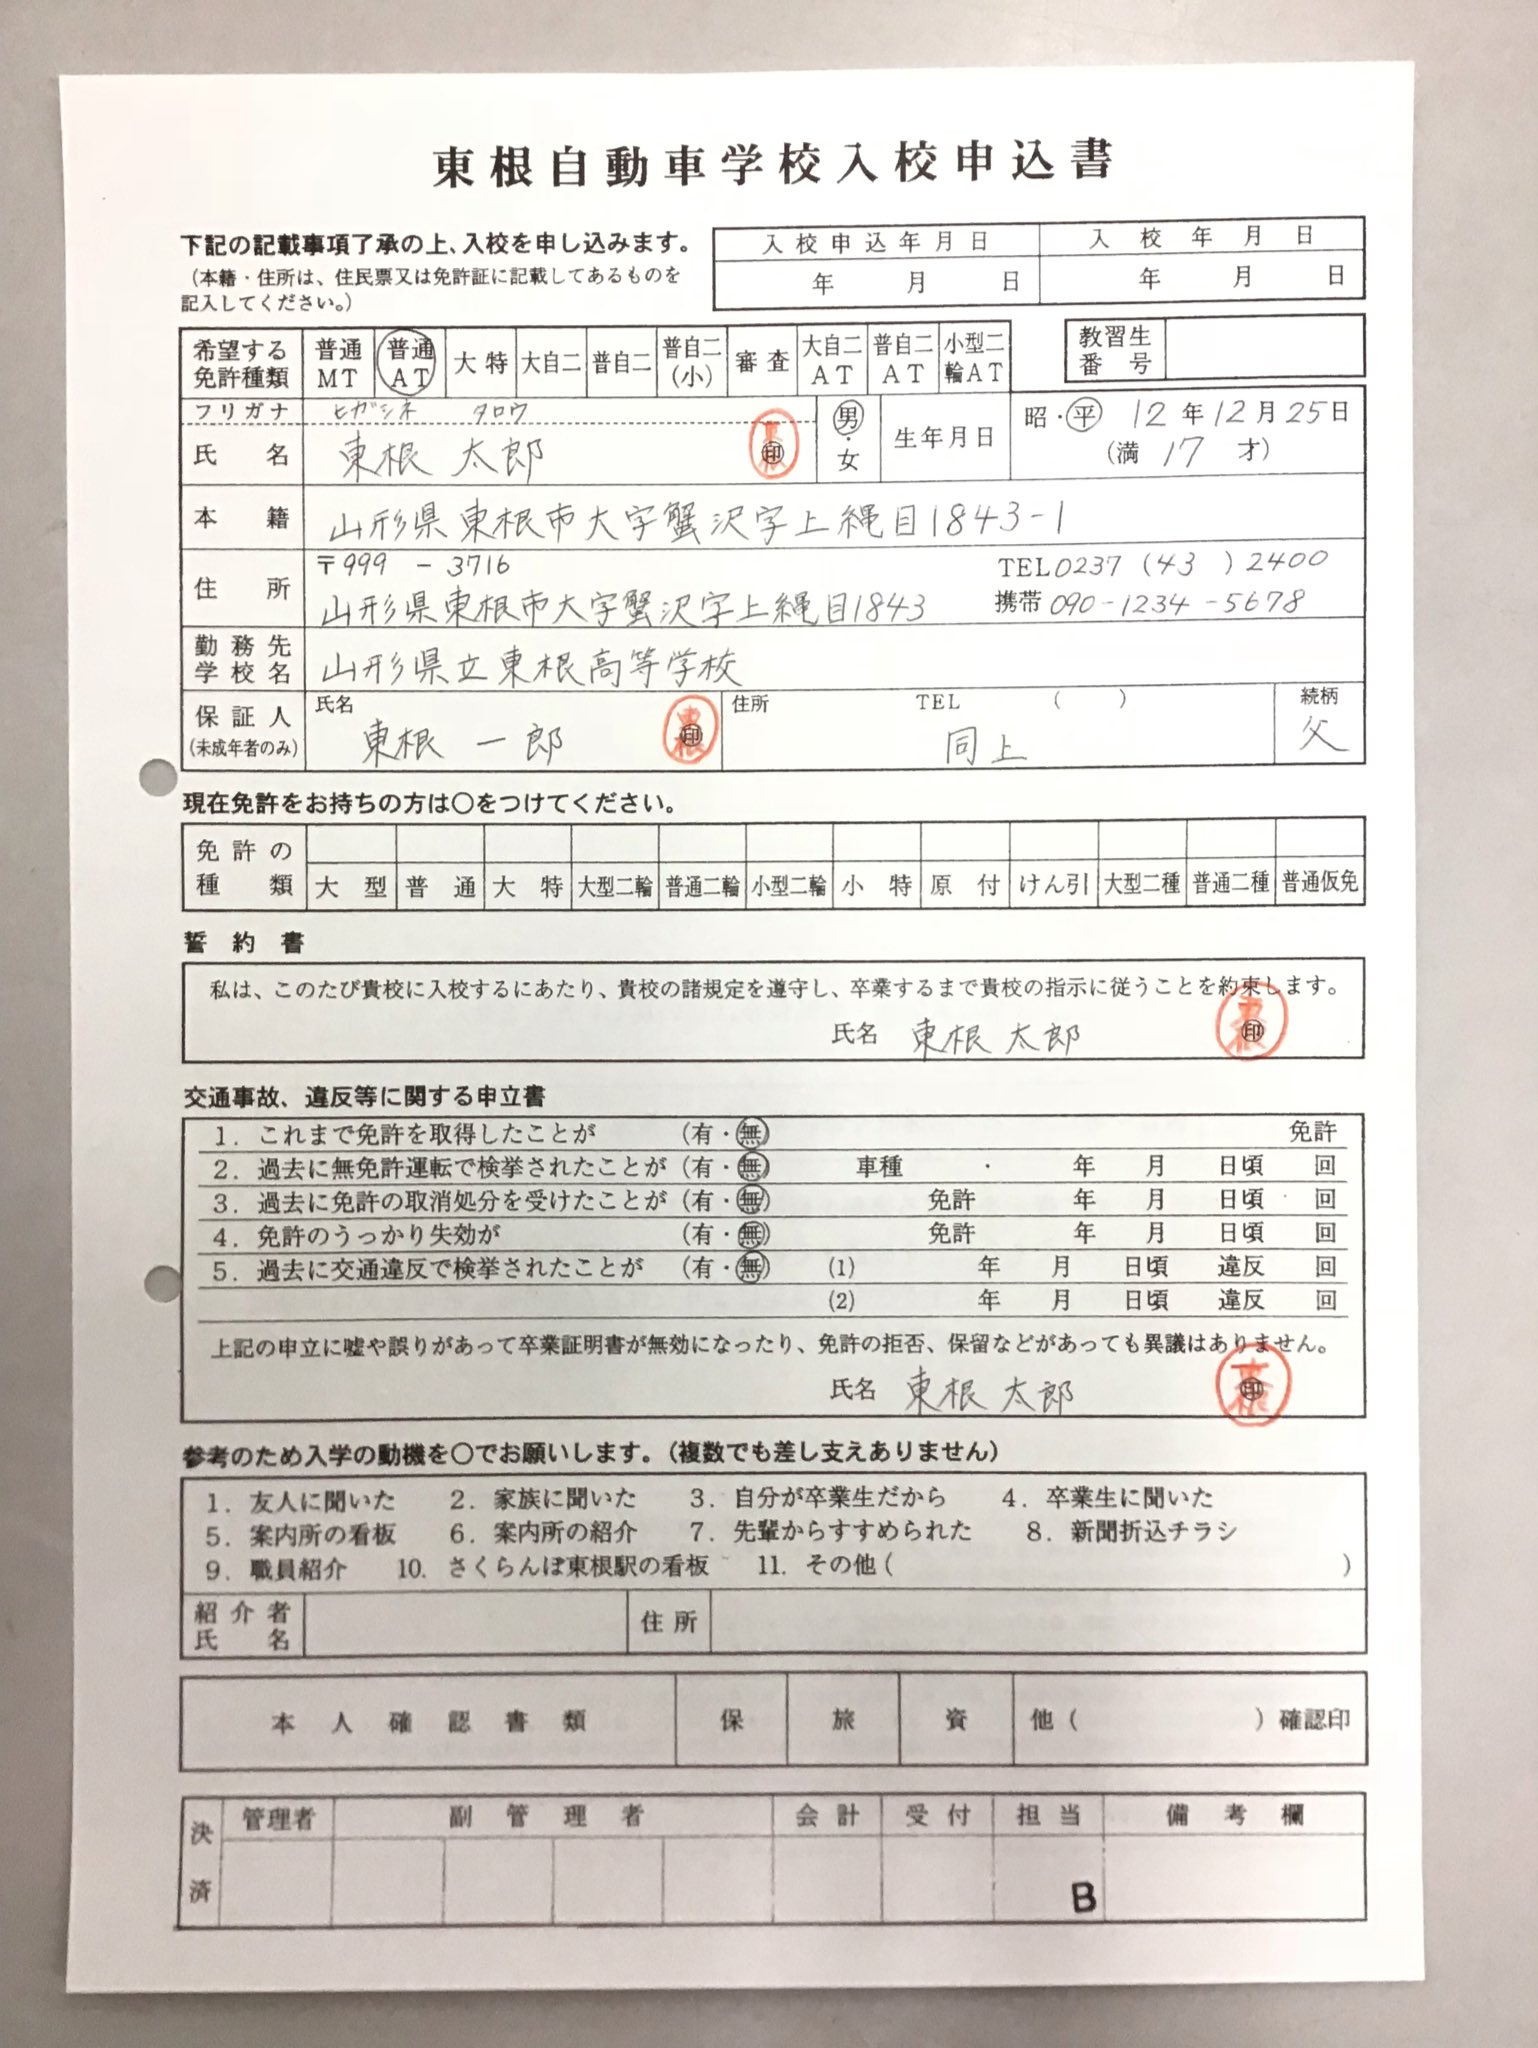 東根自動車学校入校申込書
下記の記載事項了承の上、入校を申し込みます。
(本籍・住所は、住民票又は免許証に記載してあるものを
記入してください。)
入校申込年月日 入校年月日
年 月 日 年 月 日
希望する免許種類 普通MT 普通AT 大特 大自二 普自二 普自二(小) 審査 大自二AT 普自二AT 小型二輪AT
教習生番号
フリガナ ヒガシネ タロウ
氏名 東根 太郎 印 男・女 生年月日 昭・平 12年12月25日
(満 17 才)
本籍 山形県東根市大字蟹沢字上縄目1843-1
住所 〒999 - 3716 TEL0237 (43 ) 2400
山形県東根市大字蟹沢字上縄目1843 携帯 090-1234-5678
勤務先学校名 山形県立東根高等学校
保証人(未成年者のみ) 氏名 東根 一郎 印 住所 TEL ( ) 同上 続柄 父
現在免許をお持ちの方は○をつけてください。
免許の種類 大型 普通 大特 大型二輪 普通二輪 小型二輪 小特 原付 けん引 大型二種 普通二種 普通仮免
誓約書
私は、このたび貴校に入校するにあたり、貴校の諸規定を遵守し、卒業するまで貴校の指示に従うことを約束します。
氏名 東根 太郎 印
交通事故、違反等に関する申立書
1. これまで免許を取得したことが (有・無) 免許
2. 過去に無免許運転で検挙されたことが (有・無) 車種 ・ 年 月 日頃 回
3. 過去に免許の取消処分を受けたことが (有・無) 免許 年 月 日頃 回
4. 免許のうっかり失効が (有・無) 免許 年 月 日頃 回
5. 過去に交通違反で検挙されたことが (有・無) (1) 年 月 日頃 違反 回
(2) 年 月 日頃 違反 回
上記の申立に嘘や誤りがあって卒業証明書が無効になったり、免許の拒否、保留などがあっても異議はありません。
氏名 東根 太郎 印
参考のため入学の動機を○でお願いします。(複数でも差し支えありません)
1. 友人に聞いた 2. 家族に聞いた 3. 自分が卒業生だから 4. 卒業生に聞いた
5. 案内所の看板 6. 案内所の紹介 7. 先輩からすすめられた 8. 新聞折込チラシ
9. 職員紹介 10. さくらんぼ東根駅の看板 11. その他( )
紹介者氏名 住所
本人確認書類 保 旅 資 他( ) 確認印
決済 管理者 副管理者 会計 受付 担当 備考欄
B